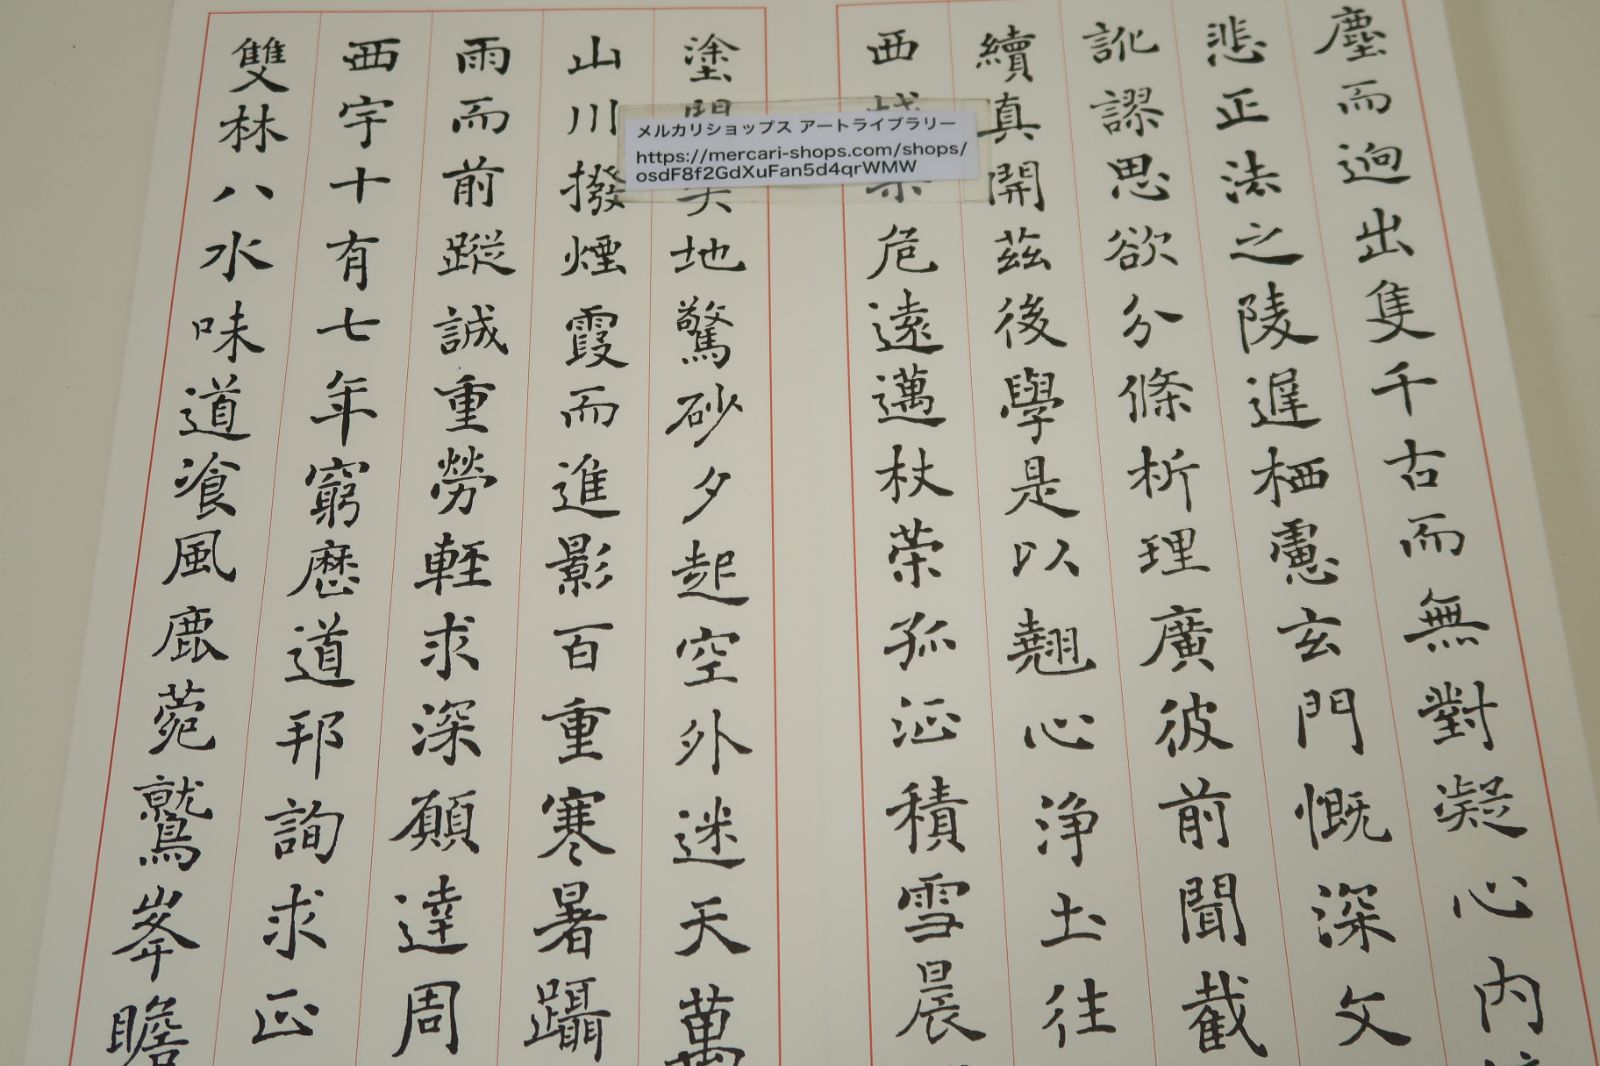 塵而迥出隻千古而無對凝心内
悲正法之陵遲栖慮玄門慨深文
訛謬思欲分條析理廣彼前聞截
續真開茲後學是以翹心淨土往
西危遠邁杖策孤征積雪晨
塗地驚砂夕起空外迷天萬
山川撥煙霞而進影百重寒暑躡
雨而前蹤誠重勞輕求深願達周
西宇十有七年窮歷道邦詢求正
雙林八水味道湌風鹿菀鷲峯瞻
メルカリショップス アートライブラリー
https://mercari-shops.com/shops/
osdF8f2GdXuFan5d4qrWMW